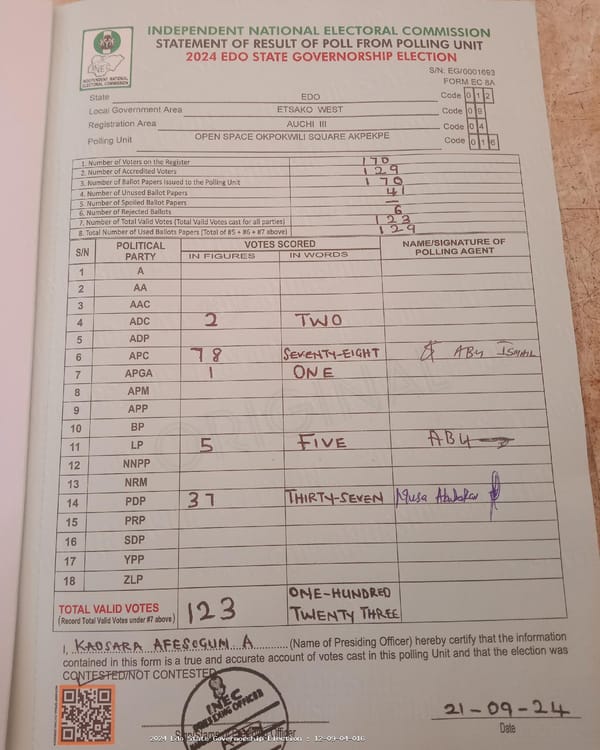 INDEPENDENT NATIONAL ELECTORAL COMMISSION
STATEMENT OF RESULT OF POLL FROM POLLING UNIT
2024 EDO STATE GOVERNORSHIP ELECTION
INEC
INDEPENDENT NATIONAL
ELECTORAL COMMISSION
S/N: EG/0001693
FORM EC 8A
State EDO Code 0 1 2
Local Government Area ETSAKO WEST Code 0 9
Registration Area AUCHI III Code 0 4
Polling Unit OPEN SPACE OKPOKWILI SQUARE AKPEKPE Code 0 1 6
1. Number of Voters on the Register 170
2. Number of Accredited Voters 129
3. Number of Ballot Papers Issued to the Polling Unit 170
4. Number of Unused Ballot Papers 41
5. Number of Spoiled Ballot Papers —
6. Number of Rejected Ballots 6
7. Number of Total Valid Votes (Total Valid Votes cast for all parties) 123
8. Total Number of Used Ballots Papers (Total of #5 + #6 + #7 above) 129
S/N POLITICAL PARTY VOTES SCORED NAME/SIGNATURE OF POLLING AGENT
IN FIGURES IN WORDS
1 A
2 AA
3 AAC
4 ADC 2 TWO
5 ADP
6 APC 78 SEVENTY-EIGHT ABU ISMAIL
7 APGA 1 ONE
8 APM
9 APP
10 BP
11 LP 5 FIVE ABU
12 NNPP
13 NRM
14 PDP 37 THIRTY-SEVEN Musa Abubakar
15 PRP
16 SDP
17 YPP
18 ZLP
TOTAL VALID VOTES 123 ONE-HUNDRED
(Record Total Valid Votes under #7 above) TWENTY THREE
ORIGINAL
I, KAOSARA AFESOGUN A (Name of Presiding Officer) hereby certify that the information
contained in this form is a true and accurate account of votes cast in this polling Unit and that the election was
CONTESTED/NOT CONTESTED
INEC
PRESIDING OFFICER
21-09-24
Date
2024 Edo State Governorship Election : 12-09-04-016